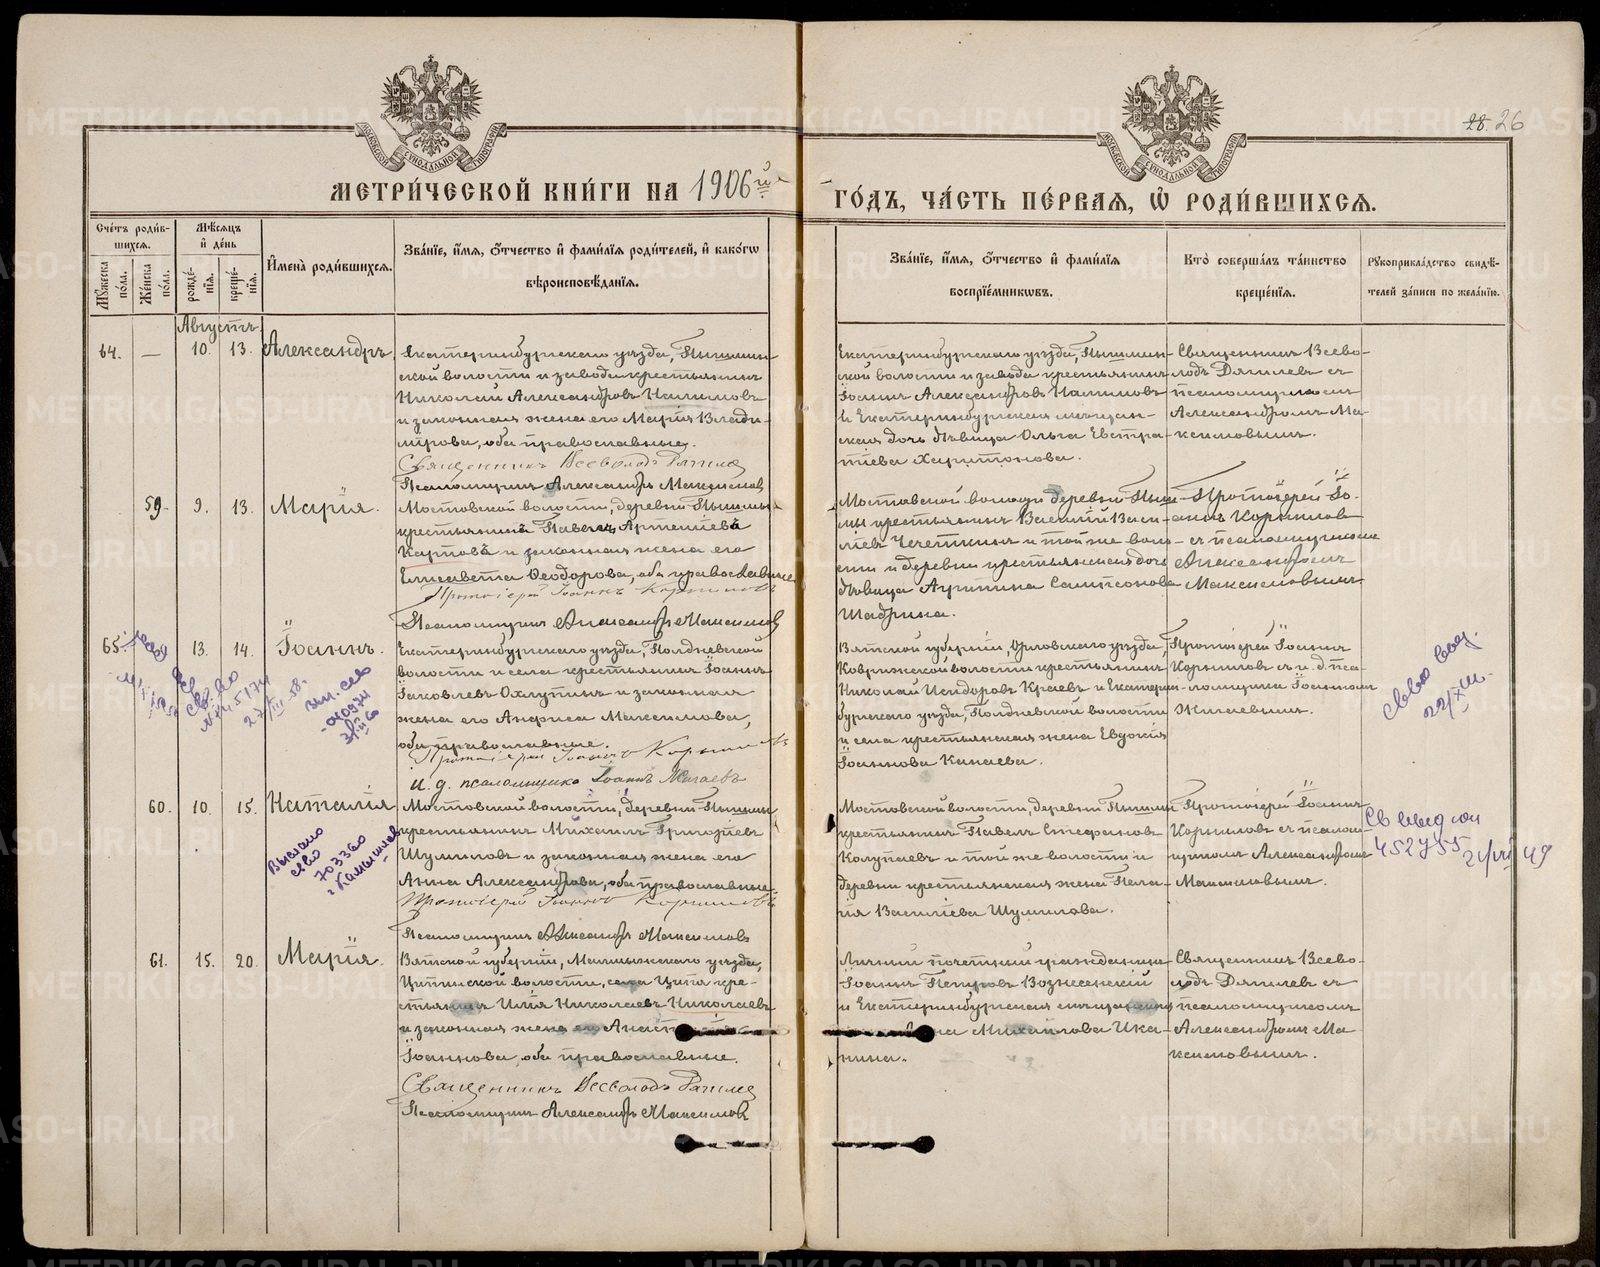 МЕТРИ́ЧЕСКОЙ КНИ́ГИ НА 1906й
ГО́ДЪ, ЧА́СТЬ ПЕ́РВАЯ, Ѡ РОДИ́ВШИХСЯ.
28. 26
МОСКОВСКОЙ СѴНОДАЛЬНОЙ ТИПОГРАФІИ
МОСКОВСКОЙ СѴНОДАЛЬНОЙ ТИПОГРАФІИ
Сче́тъ роди́вшихся.
Мѹ́жеска по́ла.
Же́нска по́ла.
Мѣ́сяцъ и҆ де́нь
рожде́нїя.
креще́нїя.
И҆мена̀ роди́вшихся.
Зва́нїе, и҆́мя, ѻ҆́тчество и҆ фами́лїя роди́телей, и҆ како́гѡ
вѣроисповѣ́данїя.
Зва́нїе, и҆́мя, ѻ҆́тчество и҆ фами́лїя
воспрїе́мникѡвъ.
Кто̀ соверша́лъ та́инство
креще́нїя.
Рѹкоприкла́дство свидѣ́-
телей за́писи по жела́нїю.
Августъ
64. — 10. 13. Александръ.
Екатеринбургскаго уѣзда, Пышмин-
ской волости и завода крестьянинъ
Николай Александровъ Налимовъ
и законная жена его Марія Влади-
мірова, оба православные.
Священникъ Всеволодъ Дягилев
Псаломщикъ Александръ Максимовъ
Екатеринбургскаго уѣзда, Пышмин-
ской волости и завода крестьянинъ
Іоаннъ Александровъ Налимовъ
и Екатеринбургская мѣщан-
ская дочь дѣвица Ольга Евстра-
тіева Харитонова.
Священникъ Всево-
лодъ Дягилевъ съ
псаломщикомъ
Александромъ Ма-
ксимовымъ.
59. 9. 13. Марія.
Мостовской волости, деревни Пышмы
крестьянина Павелъ Артеміева
Карпова и законная жена его
Елисавета Ѳеодорова, оба православные
Протоіерей Іоаннъ Корниловъ
Псаломщикъ Александръ Максимовъ
Мостовской волости деревни Пыш-
мы крестьянинъ Василій Васи-
ліевъ Чечеткинъ и той же воло-
сти и деревни крестьянская дочь
дѣвица Агрипина Сампсонова
Шадрина.
Протоіерей Іо-
аннъ Корниловъ
съ псаломщикомъ
Александромъ
Максимовымъ
65. 13. 14. Іоаннъ.
Екатеринбургскаго уѣзда, Полдневской
волости и села крестьянинъ Іоаннъ
Іаковлевъ Охлупинъ и законная
жена его Анфиса Максимова,
оба православные.
Протоіерей Іоаннъ Корниловъ
и. д. псаломщика Іоаннъ Жигаевъ
Вятской губерніи, Орловскаго уѣзда,
Ковржской волости крестьянинъ
Николай Исидоровъ Краевъ и Екатерин-
бургскаго уѣзда, Полдневской волости
и села крестьянская жена Евдокія
Іоаннова Канаева.
Протоіерей Іоаннъ
Корниловъ съ и. д. пса-
ломщика Іоанномъ
Жигаевымъ.
60. 10. 15. Наталія
Выслано
св-во
703360
г Камышлов
Мостовской волости, деревни Пышмы
крестьянинъ Михаилъ Григоріевъ
Шумиловъ и законная жена его
Анна Александрова, оба православные
Протоіерей Іоаннъ Корниловъ
Псаломщикъ Александръ Максимовъ
Мостовской волости, деревни Пышмы
крестьянинъ Павелъ Стефановъ
Колупаевъ и той же волости и
деревни крестьянская жена Пела-
гія Василіева Шумилова.
Протоіерей Іоаннъ
Корниловъ съ псалом-
щикомъ Александромъ
Максимовымъ.
452755
61. 15. 20. Марія.
Вятской губерніи, Малмыжскаго уѣзда,
Ципьинской волости, села Ципья кре-
стьянинъ Илія Николаевъ Николаевъ
и законная жена его
Іоаннова, оба православные.
Священникъ Всеволодъ Дягилев
Псаломщикъ Александръ Максимовъ
Личный почетный гражданинъ
Іоаннъ Петровъ Вознесенскій
и Екатеринбургская мѣщанская
Михайлова Ика-
нина.
Священникъ Всево-
лодъ Дягилевъ съ
псаломщикомъ
Александромъ Ма-
ксимовымъ.
METRIKI.GASO-URAL.RU